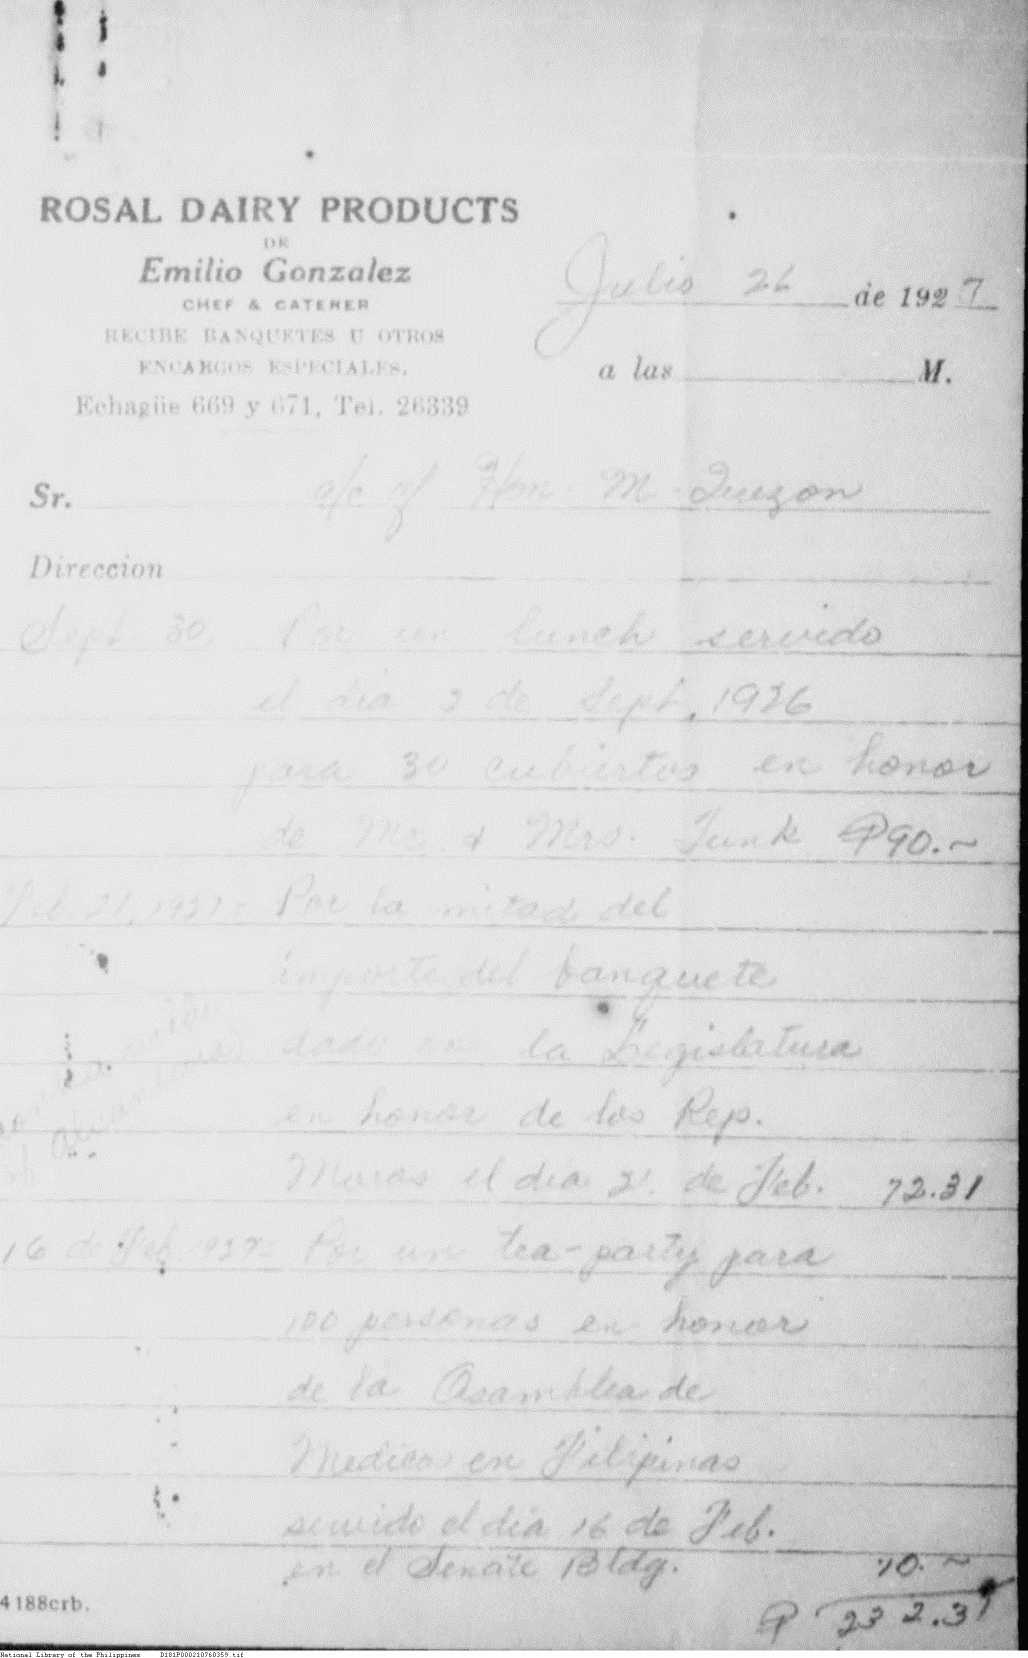 ROSAL DAIRY PRODUCTS
DE
Emilio Gonzalez
CHEF & CATERER
RECIBE BANQUETES U OTROS
ENCARGOS ESPECIALES.
Echagüe 669 y 671, Tel. 26339
Julio 26 de 1927
a las M.
Sr. a/c of Hon. M. Quezon
Direccion
Sept. 30 Por un lunch servido
el dia 2 de Sept. 1926
para 30 cubiertos en honor
de Mr. & Mrs. Funk ₱90.~
Feb. 21, 1927 - Por la mitad del
importe del banquete
dado en la Legislatura
en honor de los Rep.
Moros el dia 21 de Feb. 72.31
16 de Feb. 1927 Por un tea-party para
100 personas en honor
de la Asamblea de
Medicos en Filipinas
servido el dia 16 de Feb.
en el Senate Bldg. 70.~
₱ 232.31
4188crb.
National Library of the Philippines D181P000210760359.tif